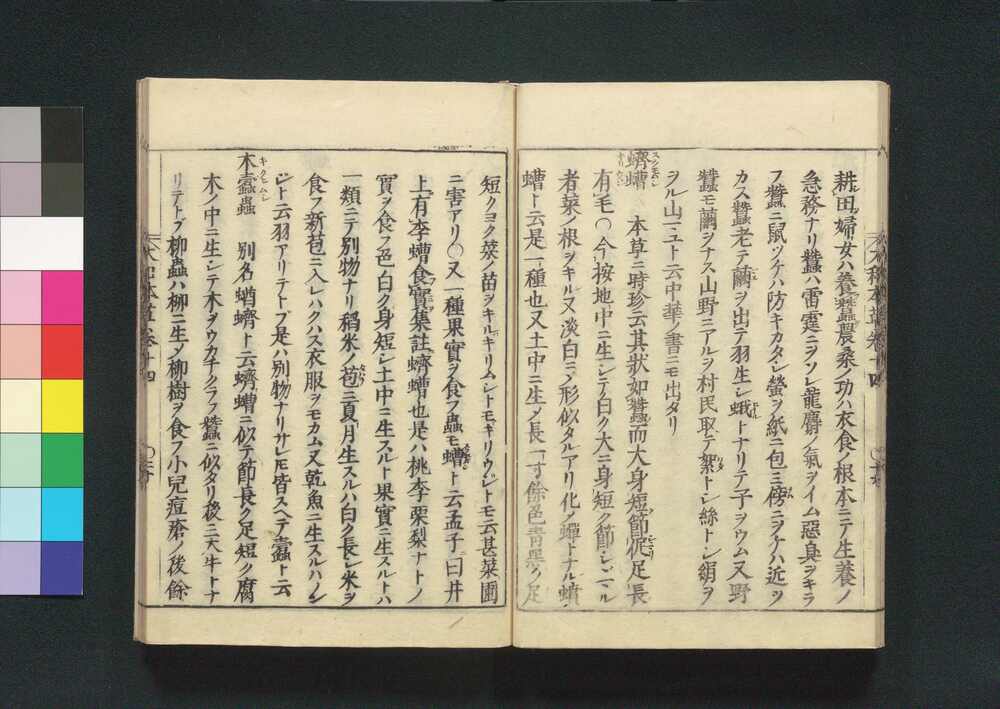 耕田婦女ハ養蠶農桑ノ功ハ衣食ノ根本ニテ生養ノ
急務ナリ蠶ハ雷霆ニヲソレ龍麝ノ氣ヲイム惡臭ヲキラ
フ蠶ニ鼠ツケハ防キカタシ螢ヲ紙ニ包ミ傍ニヲケハ近ツ
カス蠶老テ繭ヲ出テ羽生シ蛾トナリテ子ヲウム又野
蠶モ繭ヲナス山野ニアルヲ村民取テ絮トシ絲トシ絹ヲ
ヲル山マユト云中華ノ書ニモ出タリ
蠐螬 本草ニ時珍云其状如蠶而大身短節促足長
有毛〇今按地中ニ生シテ白ク大ニ身短ク節シゝマル
者菜ノ根ヲキル又淡白ニ〆形似タルアリ化〆蟬トナル蠐
螬ト云是一種也又土中ニ生〆長一寸餘色青黑ク足
短クヨク菜ノ苗ヲキルキリムシトモギリウジトモ云甚菜圃
ニ害アリ〇又一種果實ヲ食フ蟲モ螬ト云孟子ニ曰井
上有李螬食實集註蠐螬也是ハ桃李栗梨ナトノ
實ヲ食フ色白ク身短シ土中ニ生スルト果實ニ生スルトハ
一類ニテ別物ナリ稻米ノ苞ニ夏月生スルハ白ク長シ米ヲ
食フ新苞ニ入レハクハス衣服ヲモカム又乾魚ニ生スルハノシ
シト云羽アリテトブ是ハ別物ナリサレ𪜈皆スヘテ蠹ト云
木蠹蟲 別名蝤蠐ト云蠐螬ニ似テ節長ク足短ク腐
木ノ中ニ生シテ木ヲウカチクラフ蠶ニ似タリ後ニ天牛トナ
リテトブ柳蟲ハ柳ニ生〆柳樹ヲ食フ小兒痘瘡ノ後餘